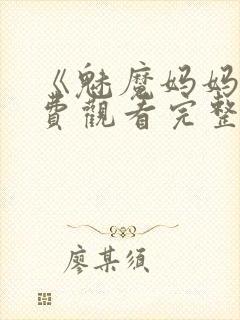 《魅魔妈妈
費觀看完整
廖某须